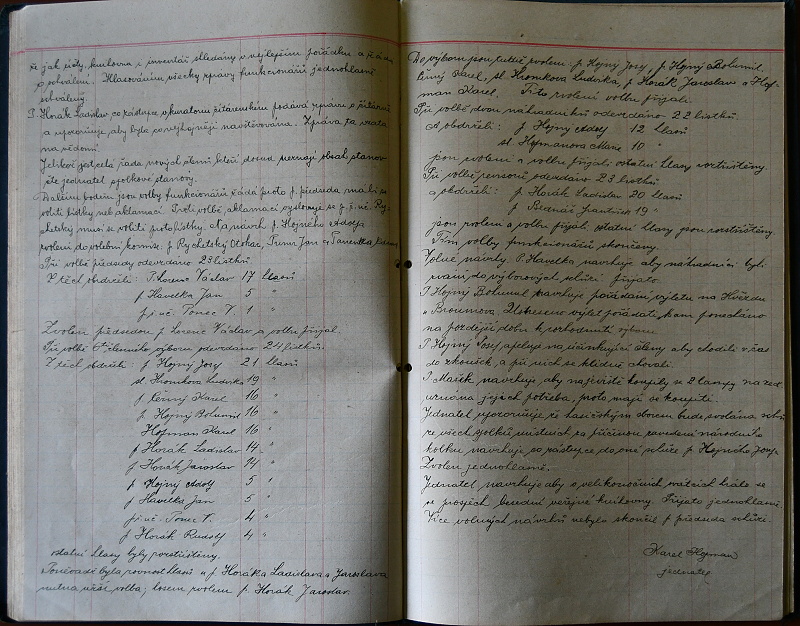 že jak účty, knihovna i inventář shledány v nejlepším pořádku a žádá
o schválení. Hlasováním všecky zprávy funkcionářů jednohlasně
schváleny.
P. Horák Ladislav co zástupce v kuratoriu čítárenském podává zprávu o čítárně
a upozorňuje, aby byla co nejhojněji navštěvována. Zpráva ta vzata
na vědomí.
Jelikož jest celá řada nových členů kteří dosud neznají obsah stanov
čte jednatel spolkové stanovy.
Dalším bodem jsou volby funkcionářů žádá proto p. předseda má-li se
voliti lístky neb aklamací. Proti volbě aklamací vyslovuje se p. ř. uč. Ry-
chetský musí se voliti proto lístky. Na návrh p. Hojného Adolfa
zvoleni do volební komise p. Rychetský Otokar, Tuma Jan a Vanentka
Při volbě předsedy odevzdáno 23 lístků
Z těch obdrželi: P. Lorenc Václav 17 hlasů
p Havelka Jan 5 "
p. ř. uč. Ponec V. 1 "
Zvolen předsedou p Lorenc Václav a volbu přijal.
Při volbě 6ti členného výboru odevzdáno 24 lístků.
Z těch obdrželi: p Hojný Josef 21 hlasů
sl. Kromková Ludvika 19 "
p. Černý Karel 16 "
p. Hojný Bohumil 16 "
Hofman Karel 16 "
p Horák Ladislav 14 "
p Horák Jaroslav 14 "
p Hojný Adolf 5 "
p Havelka Jan 5 "
p. ř. uč. Ponec V. 4 "
p Horák Rudolf 4 "
ostatní hlasy byly roztříštěny.
Poněvadž byla rovnost hlasů u p. Horáka Ladislava a Jaroslava
nutna užší volba, losem zvolen p. Horák Jaroslav.
Do výboru jsou tudíž zvoleni p. Hojný Josef, p. Hojný Bohumil,
Černý Karel, sl. Kromková Ludvika, p. Horák Jaroslav a Hof-
man Karel. Tito zvolení volbu přijali.
Při volbě dvou náhradníků odevzdáno 22 lístků.
A obdrželi: p Hojný Adolf 12 hlasů
sl. Hofmanova Marie 10 "
jsou zvoleni a volbu přijali ostatní hlasy roztříštěny.
Při volbě revisorů odevzdáno 23 lístků.
a obdrželi: p Horák Ladislav 20 hlasů
p Bednář František 19 "
jsou zvoleni a volbu přijali ostatní hlasy jsou roztříštěny.
Tím volby funkcionářů skončeny.
Volné návrhy. P. Havelka navrhuje aby náhradníci byli
zváni do výborových schůzí. Přijato.
P Hojný Bohumil navrhuje pořádání výletu na Hvězdu
a Broumova. Usneseno výlet pořádati, kam ponecháno
na pozdější dobu k rozhodnutí výboru.
P Hojný Josef, apeluje na účinkující členy aby chodili v čas
do zkoušek, a při nich se klidně chovali.
P Mařík navrhuje, aby na jeviště koupily se 2 lampy, na
uznána jejich potřeba, proto mají se koupiti.
Jednatel upozorňuje že hasičským sborem bude svolána schůze
ze všech spolků místních za příčinou zavedení národního
kolku navrhuje za zástupce do zmíněné schůze p. Hojného Josefa
Zvolen jednohlasně.
Jednatel navrhuje aby o velikonočních svátcích hrálo se
ve prospěch obecní veřejné knihovny. Přijato jednohlasně.
Více volných návrhů nebylo skončil p předseda schůzi.
Karel Hofman
jednatel